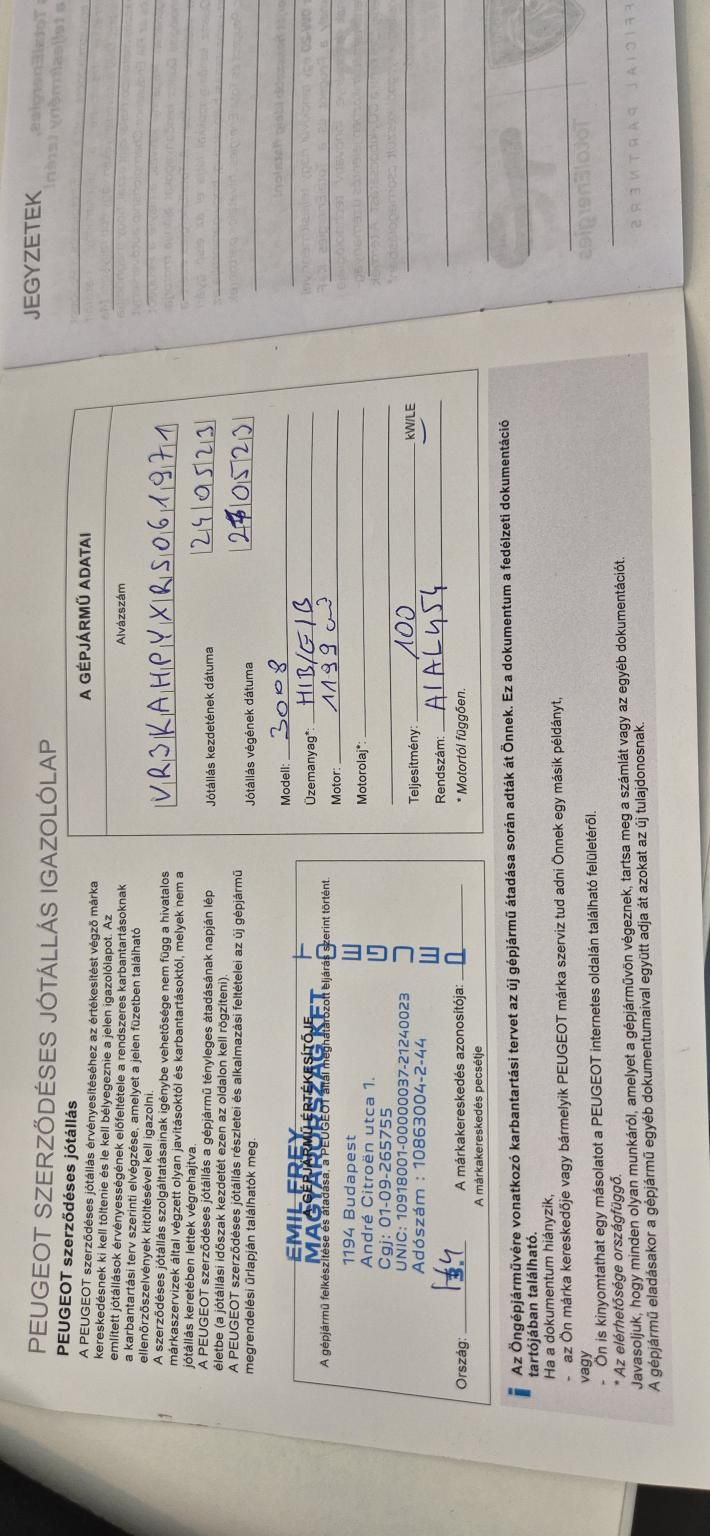 PEUGEOT SZERZŐDÉSES JÓTÁLLÁS IGAZOLÓLAP
PEUGEOT szerződéses jótállás
A PEUGEOT szerződéses jótállás érvényesítéséhez az értékesítést végző márka
kereskedésnek ki kell töltenie és le kell bélyegeznie a jelen igazolólapot. Az
említett jótállások érvényességének előfeltétele a rendszeres karbantartásoknak
a karbantartási terv szerinti elvégzése, amelyet a jelen füzetben található
ellenőrzőszelvények kitöltésével kell igazolni.
A szerződéses jótállás szolgáltatásainak igénybe vehetősége nem függ a hivatalos
márkaszervizek által végzett olyan javításoktól és karbantartásoktól, melyek nem a
jótállás keretében lettek végrehajtva.
A PEUGEOT szerződéses jótállás a gépjármű tényleges átadásának napján lép
életbe (a jótállási időszak kezdetét ezen az oldalon kell rögzíteni).
A PEUGEOT szerződéses jótállás részletei és alkalmazási feltételei az új gépjármű
megrendelési űrlapján találhatók meg.
A GÉPJÁRMŰ ÉRTÉKESÍTŐJE
A gépjármű felkészítése és átadása, a PEUGEOT által meghatározott eljárás szerint történt.
EMIL FREY
MAGYARORSZÁG KFT
1194 Budapest
André Citroën utca 1.
Cgj: 01-09-265755
UNIC: 10918001-00000037-21240023
Adószám : 10863004-2-44
PEUGEOT
3.
Ország:
A márkakereskedés azonosítója:
A márkakereskedés pecsétje
A GÉPJÁRMŰ ADATAI
Alvázszám
VR3KAHPYXRS061971
Jótállás kezdetének dátuma
240523
Jótállás végének dátuma
Modell: 3008
Üzemanyag*: HIB/EIB
Motor: 1199 cm3
Motorolaj*:
Teljesítmény: 100 kW/LE
Rendszám: AIAL454
* Motortól függően.
i Az Öngépjárművére vonatkozó karbantartási tervet az új gépjármű átadása során adták át Önnek. Ez a dokumentum a fedélzeti dokumentáció
tartójában található.
Ha a dokumentum hiányzik,
- az Ön márka kereskedője vagy bármelyik PEUGEOT márka szerviz tud adni Önnek egy másik példányt,
vagy
- Ön is kinyomtathat egy másolatot a PEUGEOT internetes oldalán található felületéről.
* Az elérhetősége országfüggő.
Javasoljuk, hogy minden olyan munkáról, amelyet a gépjárművön végeznek, tartsa meg a számlát vagy az egyéb dokumentációt.
A gépjármű eladásakor a gépjármű egyéb dokumentumaival együtt adja át azokat az új tulajdonosnak.
JEGYZETEK
TotalEnergies
OFFICIAL PARTNERS